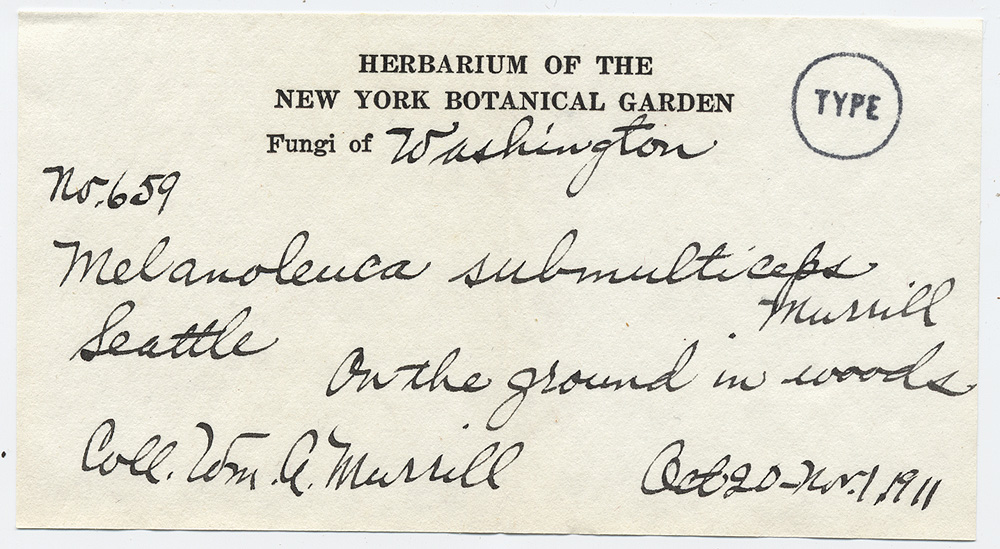 HERBARIUM OF THE
NEW YORK BOTANICAL GARDEN
TYPE
Fungi of Washington
No. 659
Melanoleuca submulticeps
Murrill
Seattle
On the ground in woods
Coll. Wm. A. Murrill Oct 20-Nov. 1, 1911